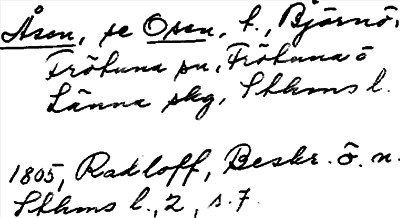 Åsen, se Osen, t., Björnö,
Frötuna sn, Frötuna o
Länna skg, Sthms l.
1805, Radloff, Beskr. ö. n.
Sthms l., 2, s. 7.